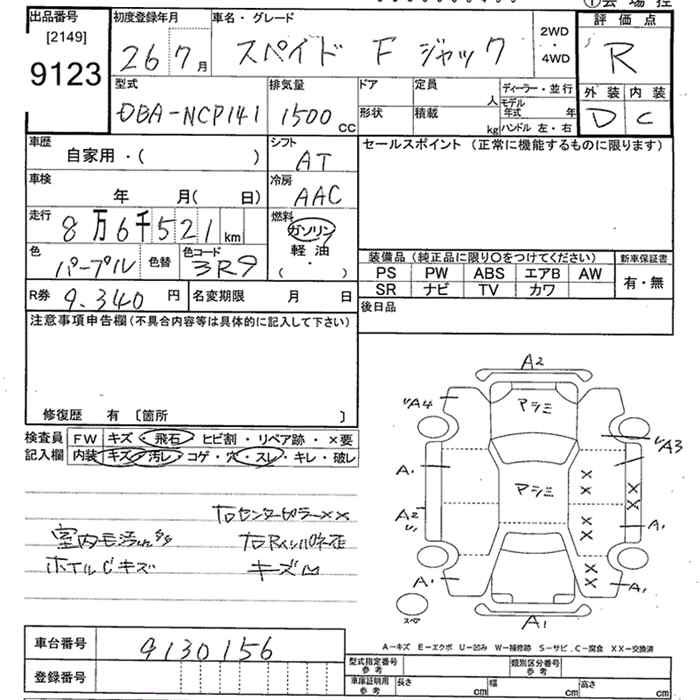 出品番号
[2149]
9123
初度登録年月
26 7月
車名・グレード
スペイド F ジャック
2WD
・
4WD
評価点
R
外装 内装
D C
型式
DBA-NCP141
排気量
1500 CC
ドア
形状
定員
人
積載
kg
ディーラー・並行
モデル年式 年
ハンドル 左・右
車歴
自家用・( )
シフト
AT
車検
年 月( 日)
冷房
AAC
走行
8万6千521 km
燃料
ガソリン
軽油
( ・ )
色
パープル
色替
色コード
3R9
R券 9,340 円
名変期限 月 日
セールスポイント (正常に機能するものに限ります)
装備品 (純正品に限り〇をつけてください)
PS PW ABS エアB AW
SR ナビ TV カワ
新車保証書
有・無
後日品
注意事項申告欄(不具合内容等は具体的に記入して下さい)
修復歴 有 〔箇所 〕
検査員
記入欄
FW キズ・飛石・ヒビ割・リペア跡・×要
内装 キズ・汚レ・コゲ・穴・スレ・キレ・破レ
右センターピラーXX
ホイルCキズ
A2
アシミ
A4
A3
A1
アシミ
A2
A1
A1
A1
A1
スペア
A-キズ E-エクボ U-凹み W-補修跡 S-サビ C-腐食 XX-交換済
車台番号
9130156
登録番号
型式指定番号
参考
類別区分番号
参考
車庫証明用
参考
長さ cm
幅 cm
高さ cm